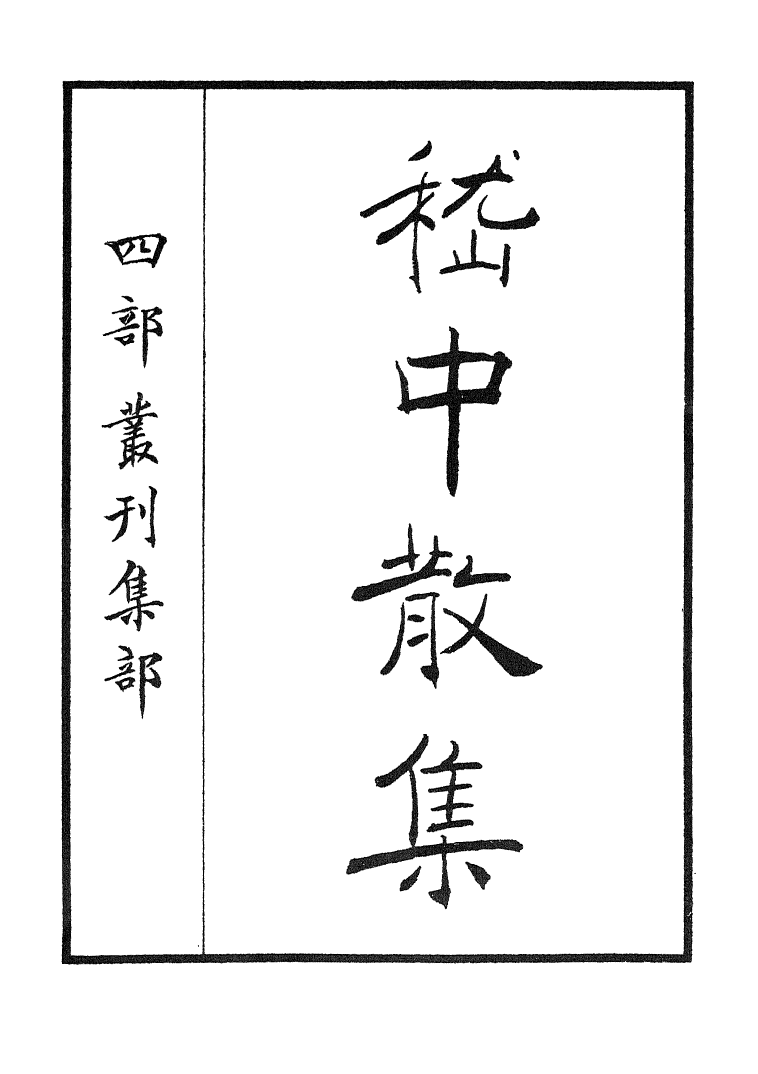 嵇中散集
四部叢刊集部